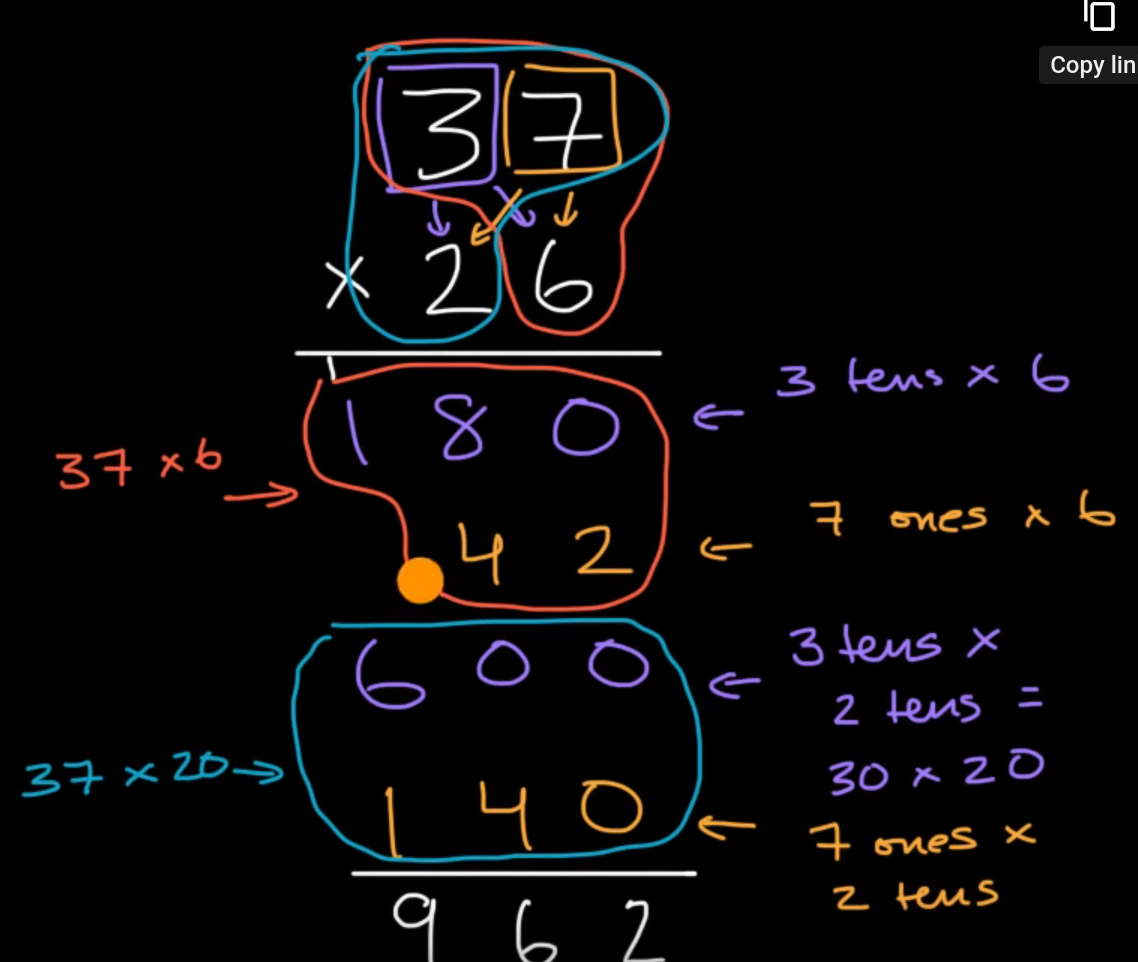 Copy lin
37
× 26
1
180 ← 3 tens × 6
37 × 6 →
42 ← 7 ones × 6
600 ← 3 tens ×
2 tens =
37 × 20 → 30 × 20
140 ← 7 ones ×
2 tens
962